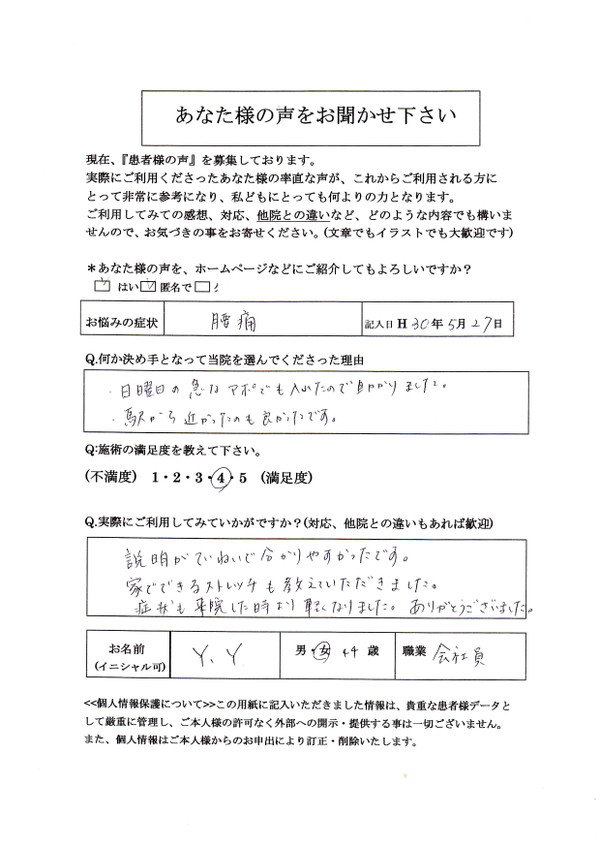 あなた様の声をお聞かせ下さい
現在、『患者様の声』を募集しております。
実際にご利用くださったあなた様の率直な声が、これからご利用される方に
とって非常に参考になり、私どもにとっても何よりの力となります。
ご利用してみての感想、対応、他院との違いなど、どのような内容でも構いま
せんので、お気づきの事をお寄せください。(文章でもイラストでも大歓迎です)
＊あなた様の声を、ホームページなどにご紹介してもよろしいですか？
はい 匿名で
お悩みの症状 腰痛 記入日 H 30年5月27日
Q.何か決め手となって当院を選んでくださった理由
・日曜日の急なアポでも入れたので助かりました。
・駅から近かったのも良かったです。
Q:施術の満足度を教えて下さい。
(不満度) 1・2・3・4・5 (満足度)
Q.実際にご利用してみていかがですか？(対応、他院との違いもあれば歓迎)
説明がていねいで分かりやすかったです。
家でできるストレッチも教えていただきました。
症状も来院した時より軽くなりました。ありがとうございました。
お名前 (イニシャル可) Y、Y 男・女 44 歳 職業 会社員
<<個人情報保護について>>この用紙に記入いただきました情報は、貴重な患者様データと
して厳重に管理し、ご本人様の許可なく外部への開示・提供する事は一切ございません。
また、個人情報はご本人様からのお申出により訂正・削除いたします。